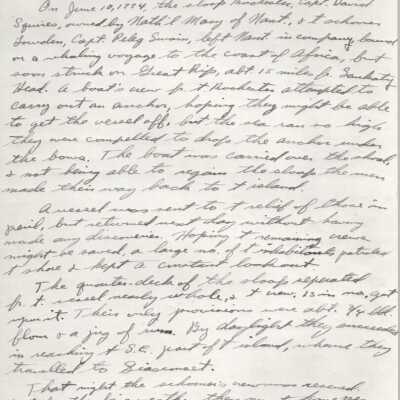 On June 10, 1774, the sloop Rochester, Capt. David
Squires, owned by Nath'l Macy of Nant., & t schooner
Bowden, Capt. Peleg Swain, left Nant. in company bound
on a whaling voyage to the coast of Africa, but
soon struck on Great Rip, abt 15 miles fr. Sankaty
Head. A boat's crew fr. t Rochester attempted to
carry out an anchor, hoping they might be able
to get the vessel off, but the sea ran so high
they were compelled to drop the anchor under
the bows. The boat was carried over the shoal,
& not being able to regain the sloop the men
made their way back to t island.
A vessel was sent to t relief of those in
peril, but returned next day without having
made any discoveries. Hoping t remaining crews
might be saved, a large no. of t inhabitants patroled
t shore & kept a constant lookout.
The quarter-deck of the sloop separated
fr. t. vessel nearly whole, & t crew, 13 in no., got
upon it. Their only provisions were abt. 1/4 bbl.
flour & a jug of rum. By daylight they succeeded
in reaching t S.E. part of t island, whence they
travelled to Siasconset.
That night the schooner's crew was rescued